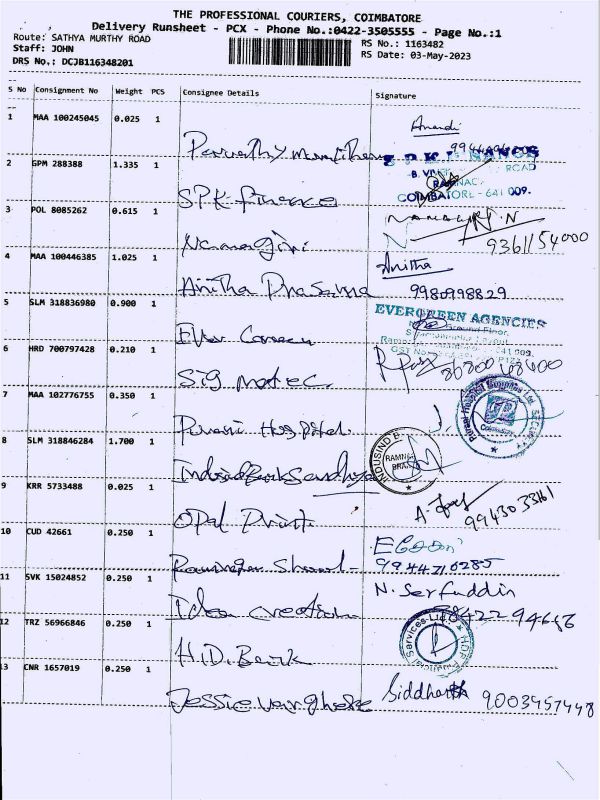 THE PROFESSIONAL COURIERS, COIMBATORE
Delivery Runsheet - PCX - Phone No.:0422-3505555 - Page No.:1
Route: SATHYA MURTHY ROAD
Staff: JOHN
DRS No.: DCJB116348201
RS No.: 1163482
RS Date: 03-May-2023
S No Consignment No Weight PCS Consignee Details Signature
1 MAA 100245045 0.025 1
Anandi
2 GPM 288388 1.335 1
SPK finance
COIMBATORE - 641 009.
3 POL 8085262 0.615 1
9361154000
4 MAA 100446385 1.025 1
Anitha
Anitha Prasanna 9980998829
5 SLM 318836980 0.900 1
EVERGREEN AGENCIES
Ever Green
6 HRD 700797428 0.210 1
Sig matec
7 MAA 102776755 0.350 1
Hospital
8 SLM 318846284 1.700 1
INDUSIND
Indusind Bank Sandhya
9 KRR 5733488 0.025 1
Opal Print
9943033161
10 CUD 42661 0.250 1
9944710285
11 SVK 15024852 0.250 1
N. Serfuddin
Idea creation
12 TRZ 56966846 0.250 1
H.D. Bank
13 CNR 1657019 0.250 1
Siddharth 9003457448
Jessie Varghese